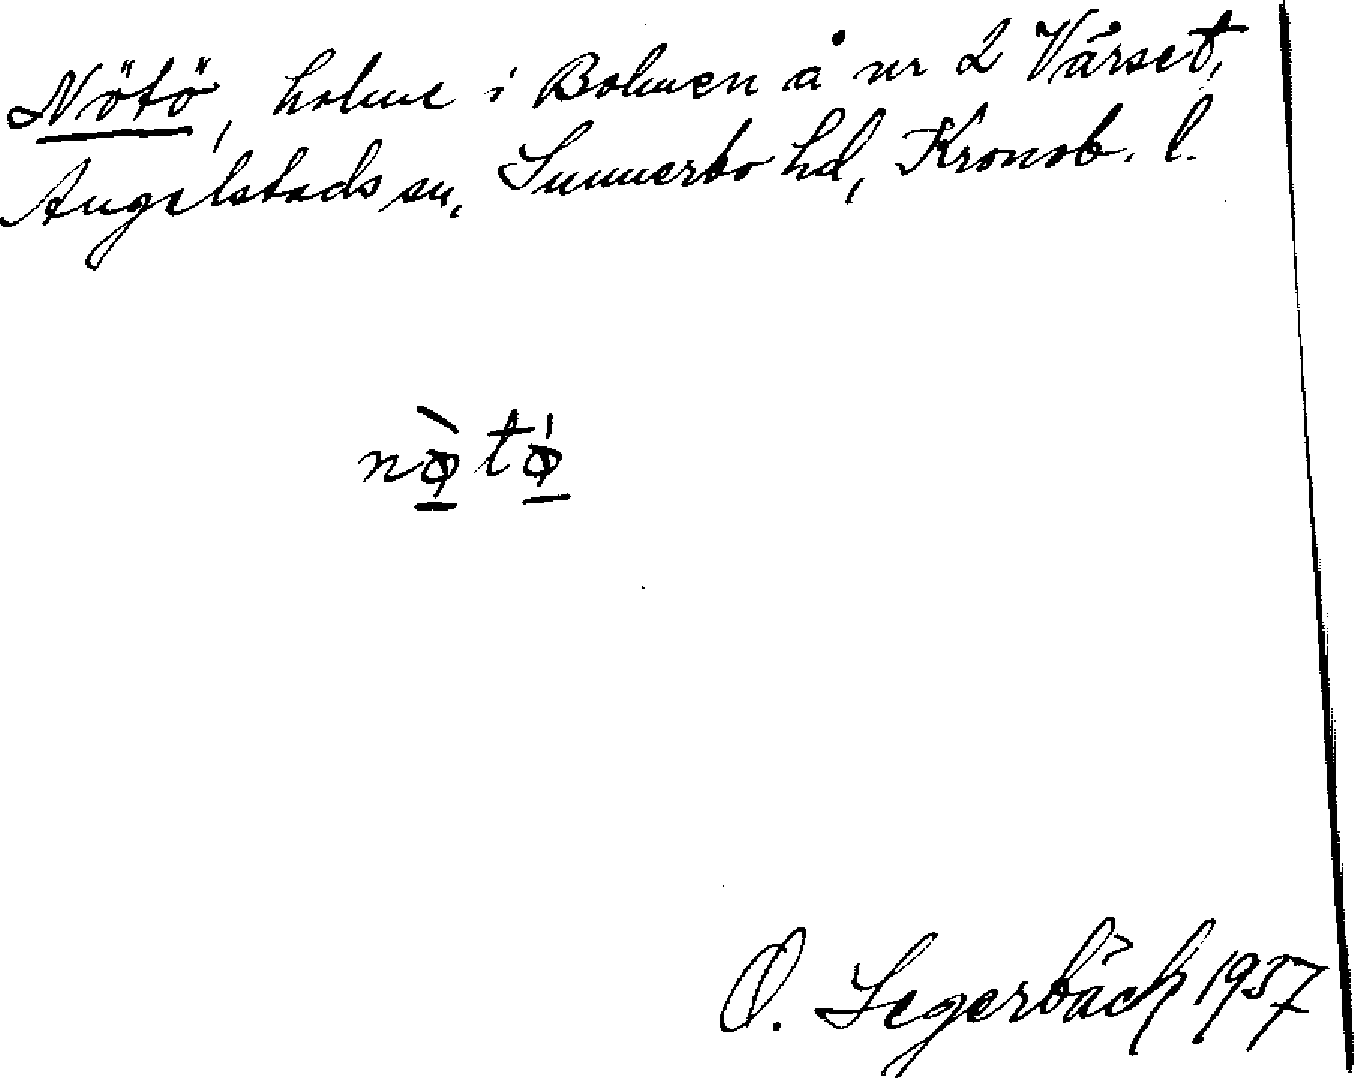 Nötö, holme i Bolmen å nr 2 Vårset,
Angelstads sn, Sunnerbo hd, Kronob. l.
nø̀tǿ
O. Segerbäck 1957